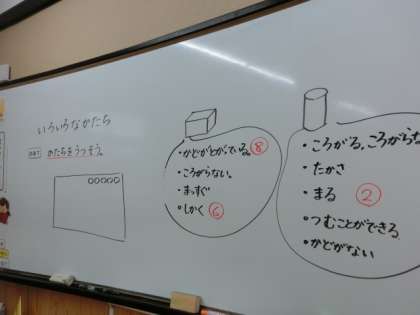 いろいろなかたち
かたちをうつそう。
○○○○○
・かどがとがっている。⑧
・ころがらない。
・まっすぐ
・しかく ⑥
・ころがる。ころがらな
・たかさ
・まる ②
・つむことができる
・かどがない